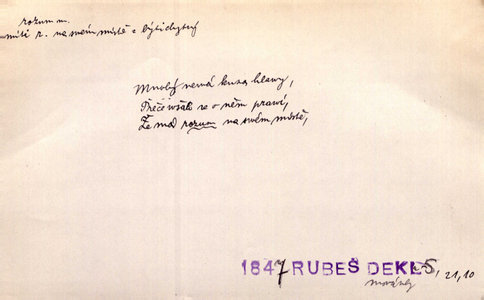 rozum m.
míti r. na svém místě = býti chytrý
Mnohý nemá kusa hlavy,
Přece však se o něm praví,
Že má rozum na svém místě,
1847 RUBEŠ DEKL 5, 21, 10